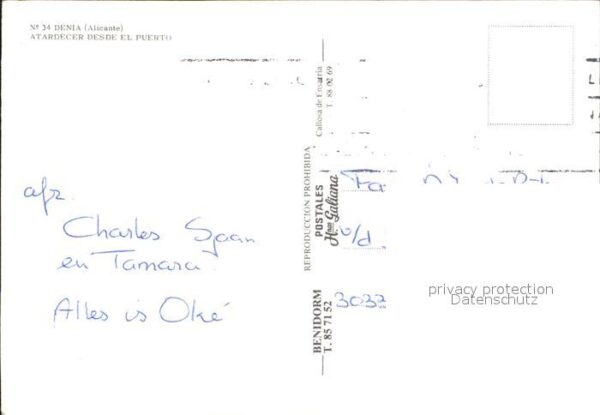 Nº 34 DENIA (Alicante)
ATARDECER DESDE EL PUERTO
afz.
Charles Spaan
en Tamara.
Alles is Oké
REPRODUCCION PROHIBIDA
Callosa de Ensarria
T. 88 02 69
POSTALES
Hnos Galiana
BENIDORM
T. 85 71 52
Fa
v/d.
3032
privacy protection
Datenschutz